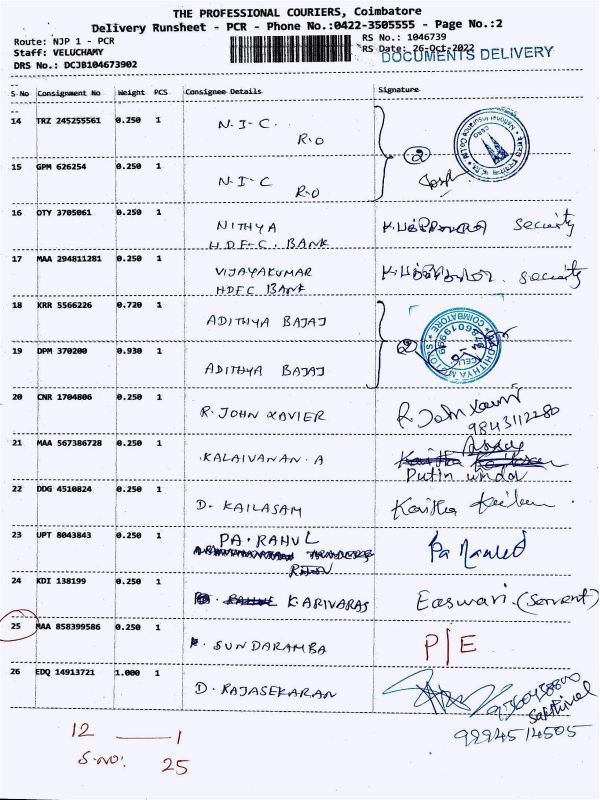 THE PROFESSIONAL COURIERS, Coimbatore
Delivery Runsheet - PCR - Phone No.:0422-3505555 - Page No.:2
Route: NJP 1 - PCR
Staff: VELUCHAMY
DRS No.: DCJB104673902
RS No.: 1046739
RS Date: 26-Oct-2022
DOCUMENTS DELIVERY
S No Consignment No Weight PCS Consignee Details Signature
14 TRZ 245255561 0.250 1 N.I.C R.O
15 GPM 626254 0.250 1 N.I.C R.O
2
National Insurance Co. Ltd
16 OTY 3705061 0.250 1 NITHYA Security
H.D.F.C. BANK
17 MAA 294811281 0.250 1 VIJAYAKUMAR Security
HDFC BANK
18 KRR 5566226 0.720 1 ADITHYA BAJAJ
19 DPM 370200 0.930 1 ADITHYA BAJAJ
2
COIMBATORE
20 CNR 1704806 0.250 1 R. JOHN XAVIER R. John Xavier
9843112280
21 MAA 567386728 0.250 1 KALAIVANAN. A
Put in under
22 DDG 4510824 0.250 1 D. KAILASAM
23 UPT 8043843 0.250 1 PA. RAHUL
24 KDI 138199 0.250 1 KARIVARAS Easwari. (Servent)
25 MAA 858399586 0.250 1 SUNDARAMBA P/E
26 EDQ 14913721 1.000 1 D. RAJASEKARAN
Sakthivel
9994514505
12 — 1
S.NO: 25